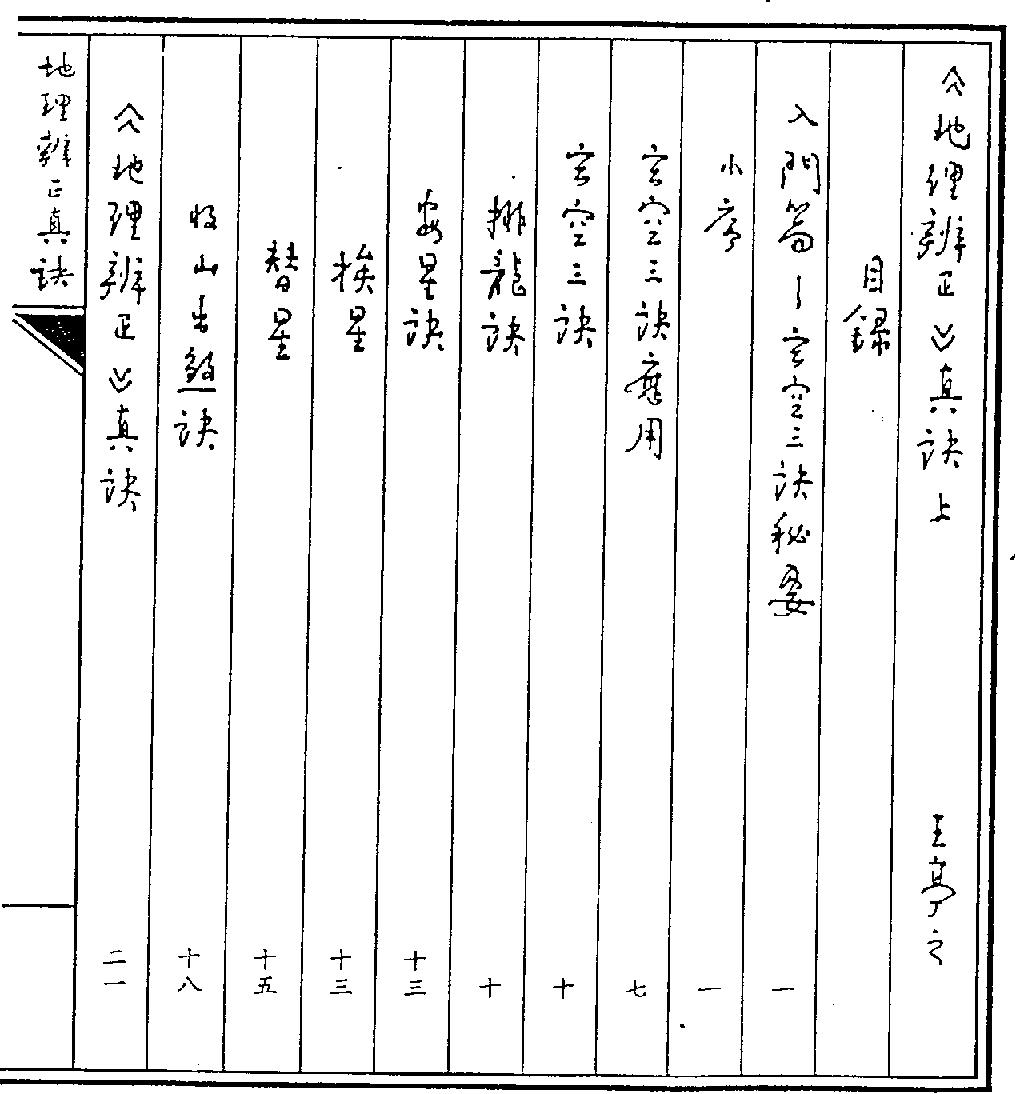 《地理辨正》真訣上 王亭之
目録
入門篇－玄空三訣秘要 一
小序 一
玄空三訣應用 七
玄空三訣 十
排龍訣 十
安星訣 十三
挨星 十三
替星 十五
收山出煞訣 十八
《地理辨正》真訣 二一
地理辨正真訣